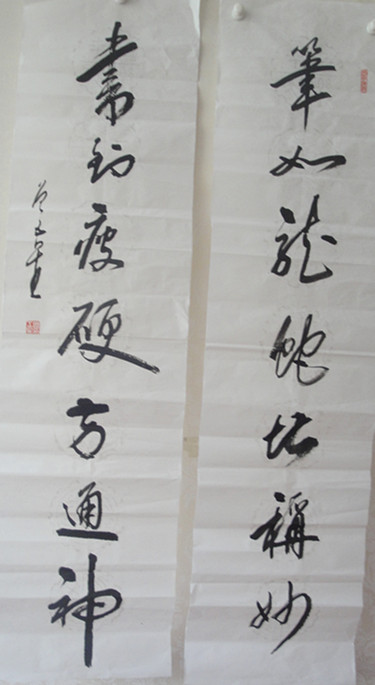 筆如龍蛇堪稱妙
書到瘦硬方通神